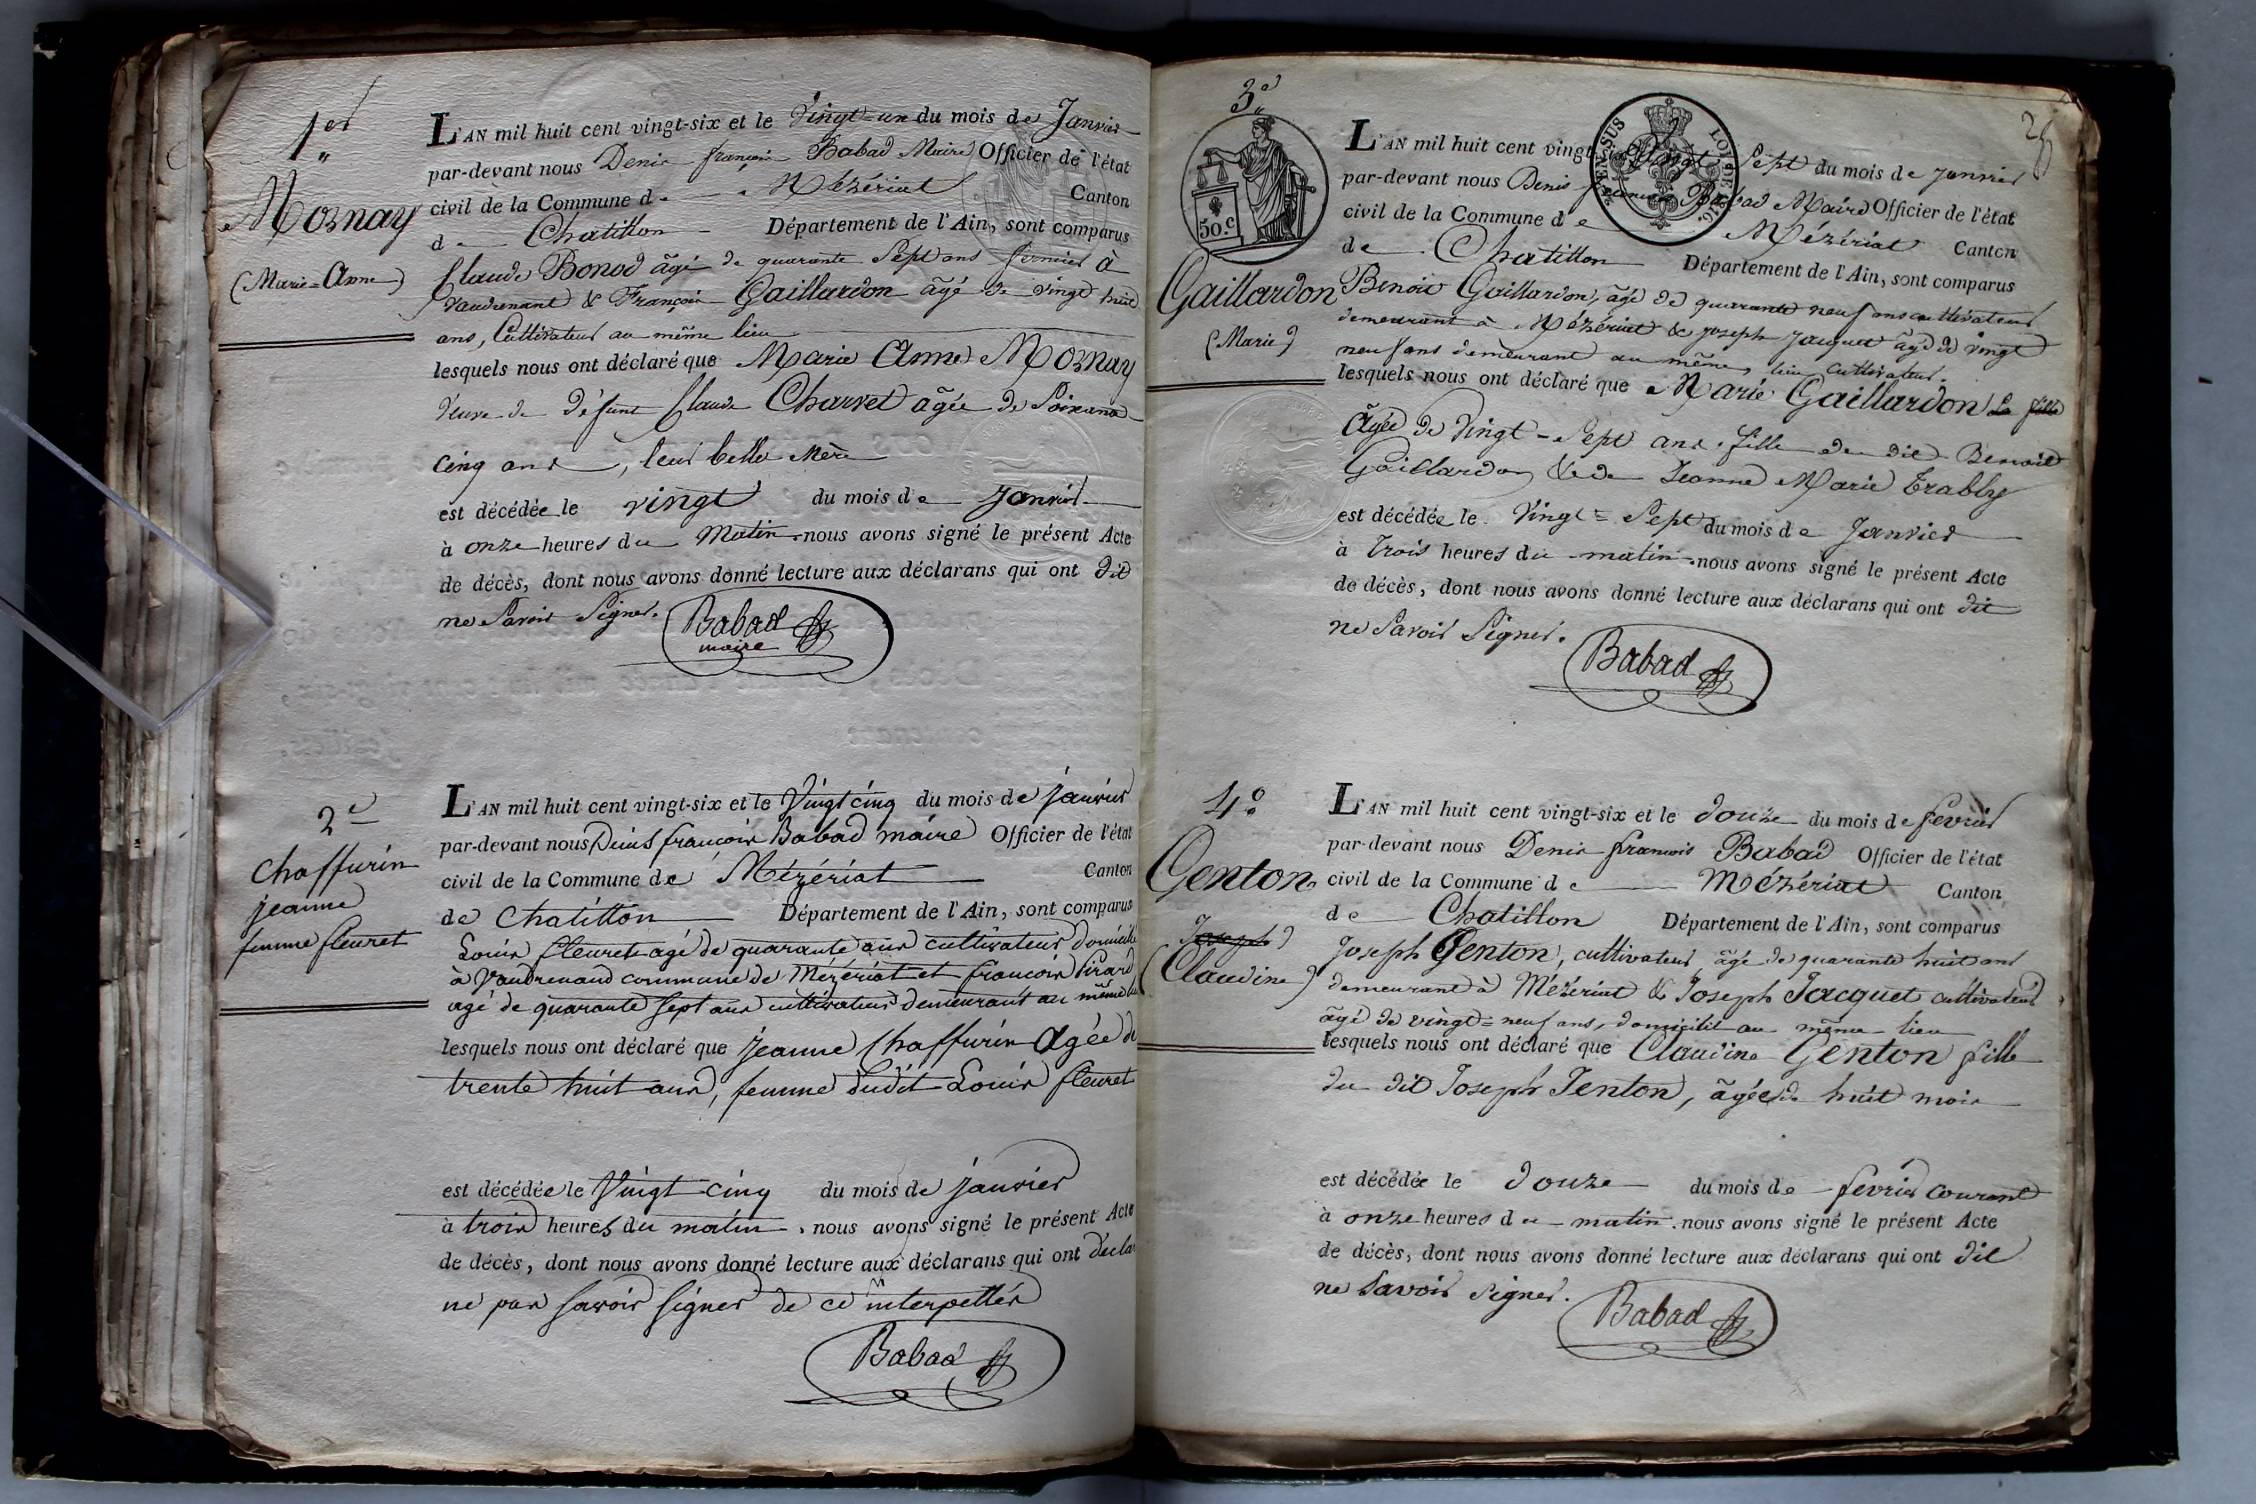 1er
Mornay
(Marie=Anne)
L'AN mil huit cent vingt-six et le Vingt=un du mois de Janvier
par-devant nous Denis françois Babad Maire Officier de l'état
civil de la Commune de Mézériat Canton
de Chatillon Département de l'Ain, sont comparus
Claude Bonod âgé de quarante Sept ans fermier à
Vaudrenant & François Gaillardon âgé de vingt huit
ans, Cultivateur au même lieu
lesquels nous ont déclaré que Marie Anne Mornay
Veuve de défunt Claude Charvet agée de Soixante
cinq ans, leur belle Mère
est décédée le vingt du mois de Janvier
à onze heures du Matin. nous avons signé le présent Acte
de décès, dont nous avons donné lecture aux déclarans qui ont dit
ne Savoir Signer. Babad
maire
2e
Chaffurin
jeanne
femme fleuret
L'AN mil huit cent vingt-six et le Vingt cinq du mois de janvier
par-devant nous Denis françois Babad maire Officier de l'état
civil de la Commune de Mézériat Canton
de Chatillon Département de l'Ain, sont comparus
Louis fleuret agé de quarante ans cultivateur domicilié
à Vaudrenand commune de Mézériat et françois
agé de quarante sept ans cultivateur demeurant au même
lesquels nous ont déclaré que jeanne Chaffurin agée de
trente huit ans, femme dudit Louis fleuret
est décédée le Vingt cinq du mois de janvier
à trois heures du matin. nous avons signé le présent Acte
de décès, dont nous avons donné lecture aux déclarans qui ont décla
ne pas savoir signer de ce interpellés
Babad
3e
25
50.c
EN SUS
LOI DE 1816.
Gaillardon
(Marie)
L'AN mil huit cent vingt Vingt Sept du mois de janvier
par-devant nous Denis françois Babad Maire Officier de l'état
civil de la Commune de Mézériat Canton
de Chatillon Département de l'Ain, sont comparus
Benoit Gaillardon, âgé de quarante neuf ans cultivateur
demeurant à Mézériat & joseph jacquet âgé de vingt
neuf ans demeurant au même lieu cultivateur.
lesquels nous ont déclaré que Marie Gaillardon La fille
âgée de Vingt-Sept ans. fille du dit Benoit
Gaillardon & de Jeanne Marie Trably
est décédée le Vingt=Sept du mois de Janvier
à Trois heures du matin. nous avons signé le présent Acte
de décès, dont nous avons donné lecture aux déclarans qui ont dit
ne Savoir Signer.
Babad
4o
Genton
Joseph)
(Claudine)
L'AN mil huit cent vingt-six et le douze du mois de fevrier
par-devant nous Denis francois Babad Officier de l'état
civil de la Commune de Mézériat Canton
de Chatillon Département de l'Ain, sont comparus
Joseph Genton, cultivateur, âgé de quarante huit ans
demeurant à Mézériat & Joseph Jacquet cultivateur
âgé de vingt=neuf ans, domicilié au même lieu
lesquels nous ont déclaré que Claudine Genton fille
du dit Joseph Jenton, âgée de huit mois
est décédée le douze du mois de fevrier courant
à onze heures du matin. nous avons signé le présent Acte
de décès, dont nous avons donné lecture aux déclarans qui ont dit
ne Savoir signer.
Babad